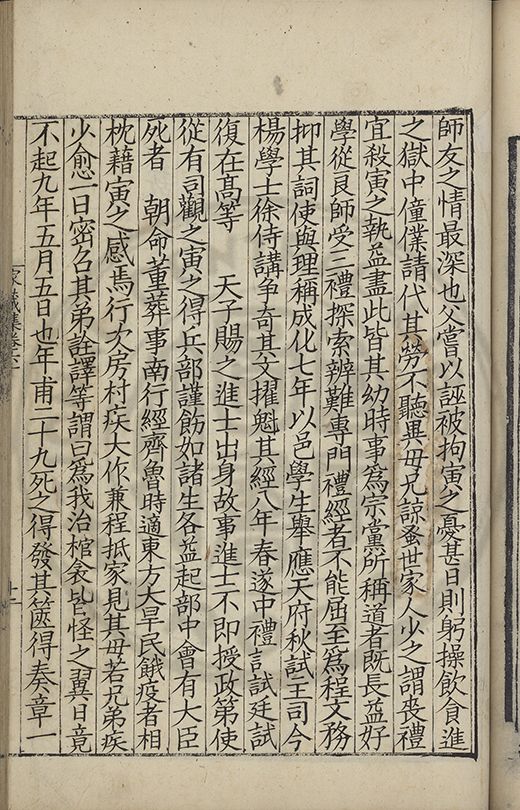 師友之情最深也父嘗以誣被拘寅之憂甚日則躬操飲食進
之獄中僮僕請代其勞不聽異毋兄諒蚤世家人少之謂喪禮
宜殺寅之執益盡此皆其幼時事爲宗黨所稱道者旣長益好
學從良師受三禮探索辨難專門禮經者不能屈至爲程文務
抑其詞使與理稱成化七年以邑學生舉應天府秋試主司今
楊學士徐侍講爭奇其文擢魁其經八年春遂中禮部試廷試
復在高等　天子賜之進士出身故事進士不即授政第使
從有司觀之寅之得兵部謹飭如諸生各益起部中會有大臣
死者　朝命董葬事南行經齊魯時適東方大旱民餓疫者相
枕藉寅之感焉行次房村疾大作兼程抵家見其母若兄弟疾
少愈一日密召其弟詮譯等謂曰爲我治棺衾皆怪之翼日竟
不起九年五月五日也年甫二十九死之得發其篋得奏章一